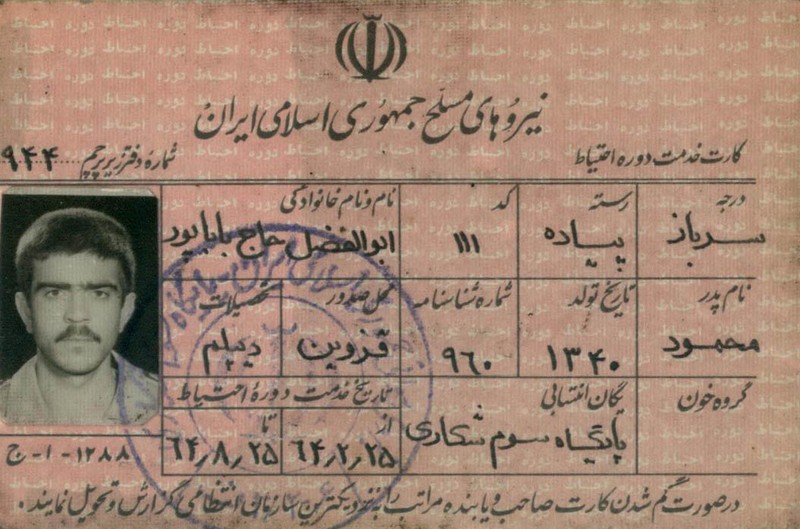 نیروهای مسلح جمهوری اسلامی ایران
کارت خدمت دوره احتیاط
شماره دفتر زیر پرچم ۹۴۴
درجه
رسته
کد
نام و نام خانوادگی
سرباز
پیاده
۱۱۱
ابوالفضل حاج باباپور
نام پدر
تاریخ تولد
شماره شناسنامه
محل صدور
تحصیلات
محمود
۱۳۴۰
۹۶۰
قزوین
دیپلم
گروه خون
یگان انتسابی
تاریخ خدمت دوره احتیاط
پایگاه سوم شکاری
از
تا
۶۴٫۲٫۲۵
۶۴٫۸٫۲۵
۱۲۸۸-۱-ج
درصورت گم شدن کارت صاحب و یا بنده مراتب را به نزدیکترین سازمان انتظامی گزارش و تحویل نمایند.